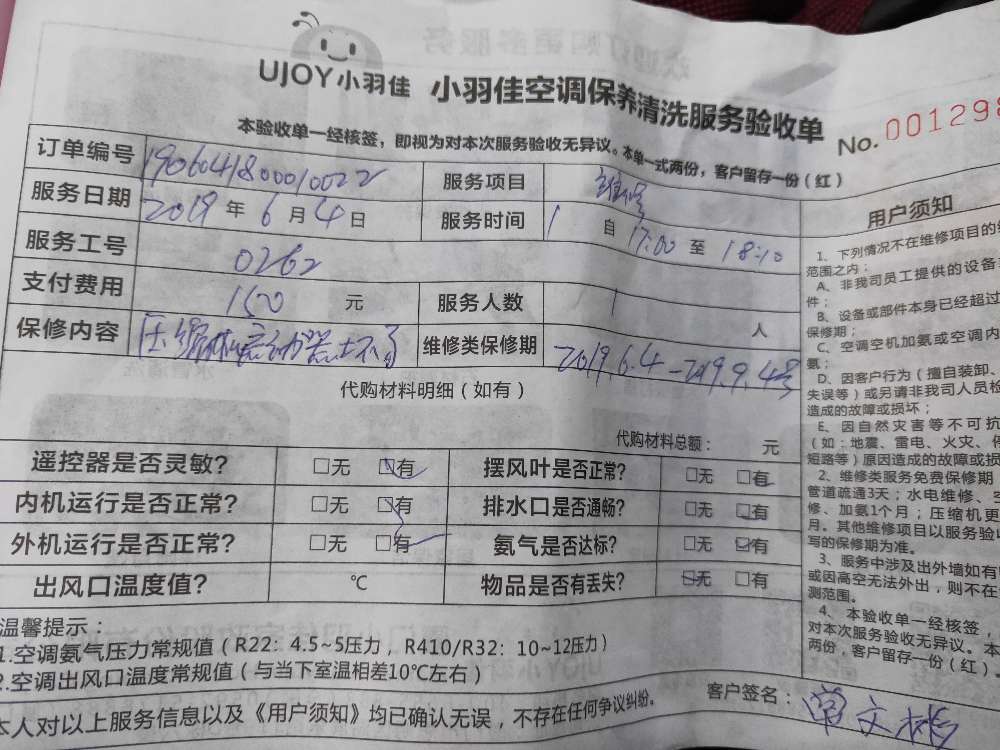 UJOY小羽佳 小羽佳空调保养清洗服务验收单
No. 001298
本验收单一经核签，即视为对本次服务验收无异议。本单一式两份，客户留存一份（红）
订单编号 190604180010022 服务项目 维修
服务日期 2019 年 6 月 4 日 服务时间 1 自 17:00 至 18:10
服务工号 0262
支付费用 150 元 服务人数 1 人
保修内容 压缩机启动器 维修类保修期 2019.6.4-2019.9.4号
代购材料明细（如有）
代购材料总额： 元
遥控器是否灵敏? □无 □有 摆风叶是否正常? □无 □有
内机运行是否正常? □无 □有 排水口是否通畅? □无 □有
外机运行是否正常? □无 □有 氨气是否达标? □无 □有
出风口温度值? ℃ 物品是否有丢失? □无 □有
温馨提示：
1.空调氨气压力常规值（R22：4.5~5压力，R410/R32：10~12压力）
2.空调出风口温度常规值（与当下室温相差10℃左右）
本人对以上服务信息以及《用户须知》均已确认无误，不存在任何争议纠纷。
客户签名：
用户须知
1、下列情况不在维修项目的
范围之内：
A、非我司员工提供的设备
件；
B、设备或部件本身已经超过
保修期；
C、空调空机加氨或空调内
氨；
D、因客户行为（擅自装卸、
失误等）或另请非我司人员检
造成的故障或损坏；
E、因自然灾害等不可抗
（如：地震、雷电、火灾、停
短路等）原因造成的故障或损
2、维修类服务免费保修期
管道疏通3天；水电维修、空
修、加氨1个月；压缩机更
月。其他维修项目以服务验收
写的保修期为准。
3、服务中涉及出外墙如有
或因高空无法外出，则不在
测范围。
4、本验收单一经核签，
对本次服务验收无异议。本
两份，客户留存一份（红）。